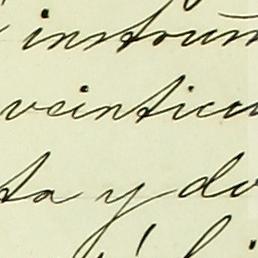 instrum
veinticu
ta y do